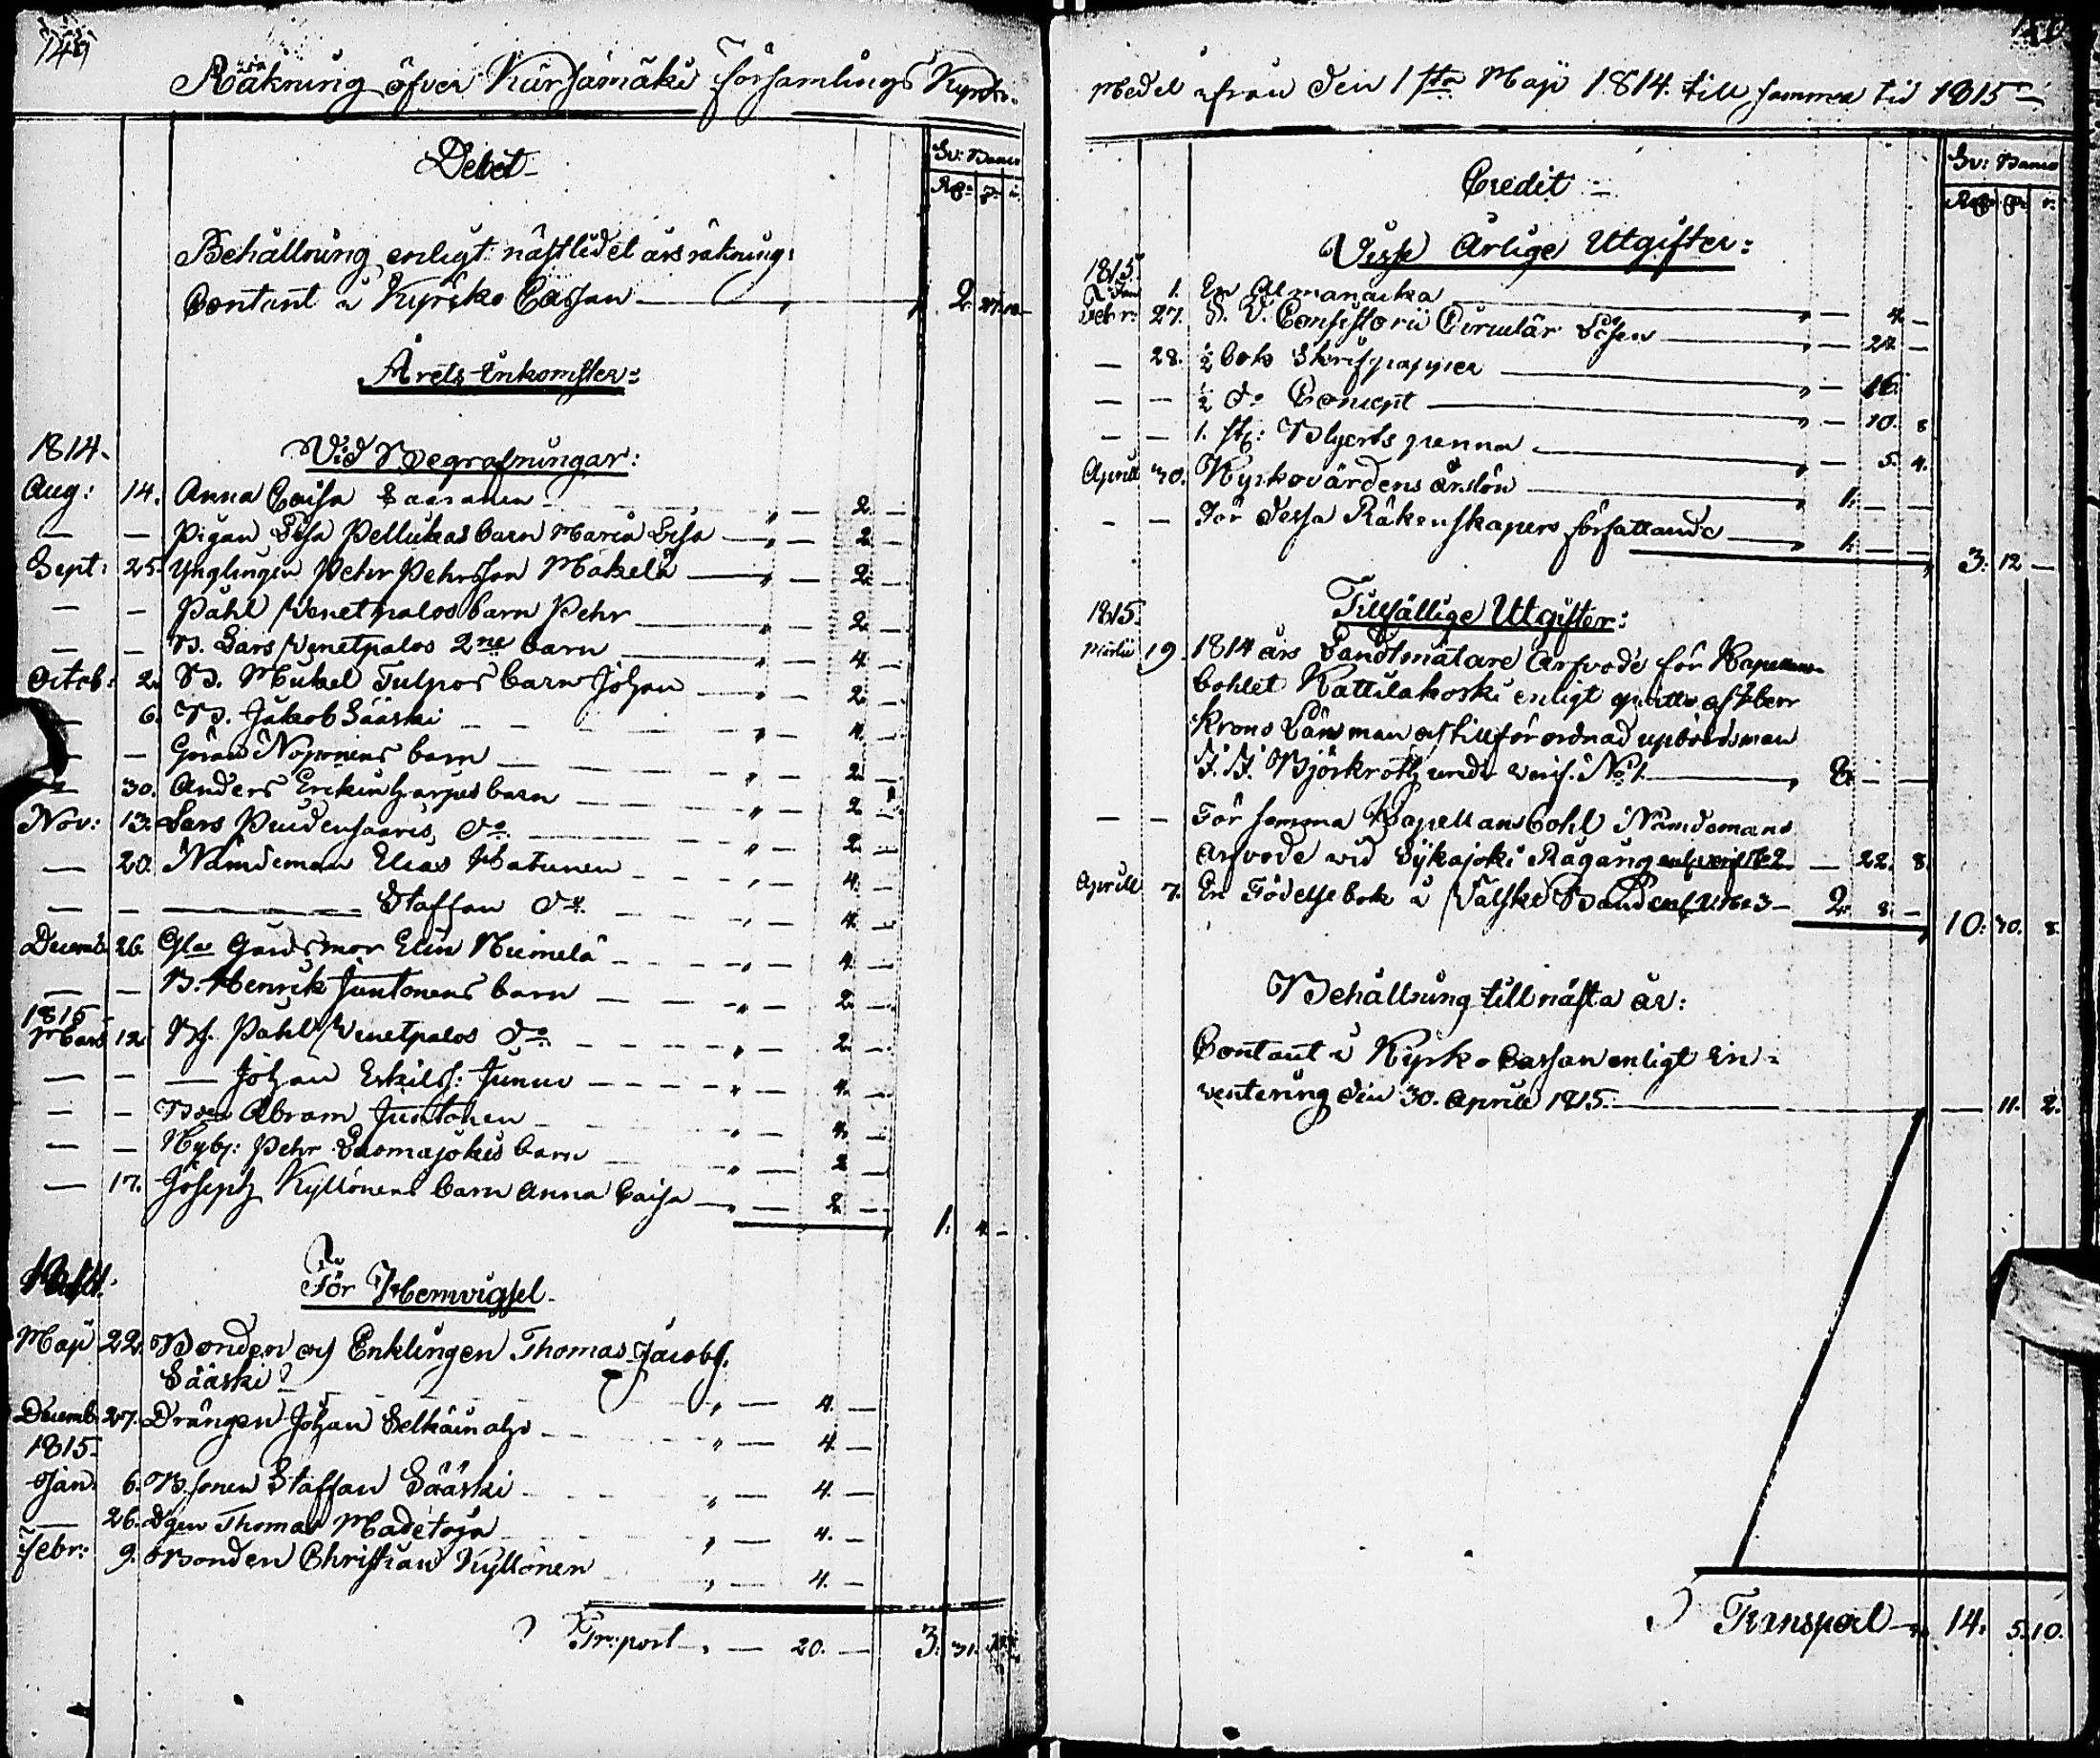 149
Räkning öfver Kärsämäki Församlings Kyrko-
Debet
Sv: Banco
Behållning enligt nästledet års räkning:
Contant i Kyrko Cassan — 2. 27. 10
Årets Inkomster:
1814.
Vid Begrafningar:
Aug: 14. Anna Caisa Saaranen — 2. —
— — Pigan Lisa Pellikas barn Maria Lisa — 2 —
Sept: 25. Ynglingen Pehr Pehrsson Mäkelä — 2. —
— — Påhl Venetpalos barn Pehr — 2. —
— — B. Lars Venetpalos 2ne barn — 4. —
Octob: 2. B. Mickel Tulpos barn Johan — 2. —
— 6. B. Jakob Sääski — 4. —
— — Göran Noponens barn — 2. —
— 30. Anders barn — 2
Nov: 13. Lars do — 2. —
— 20. Nämdeman Elias Hatunen — 4. —
— — Staffan do — 4. —
Decemb: 26. Gla Gårdsmor Elin Niemelä — 4. —
— — B. Henrik Juntonens barn — 2. —
1815
Mars 12 Påhl Venetpalos do — 2. —
— — Johan Eskilss: Junno — 4. —
— — Abram Juntonen — 4. —
— — Nyb: Pehr barn — 2 —
— 17. Joseph Kyllönens barn Anna Caisa — 2. —
1. 4. —
För Hemvigsel.
Maji 22. Bonden och Enklingen Thomas Jacobs.
Sääski — 4. —
Decemb. 27. Drängen Johan Selkäinaho — 4. —
1815.
Jan: 6. B. sonen Staffan Sääski — 4. —
— 26. Dgen Thomas Madetoja — 4. —
Febr: 9. Bonden Christian Kyllönen — 4. —
Tr:port — 20. — 3. 31.
Medel ifrån den 1sta Maji 1814. till samma tid 1815
Credit
Sv: Banco
Visse Årlige Utgifter:
1815.
Jan 1. En Almanacka — 4. —
Febr: 27. S. V. Consistorii Circulär Lösen — 24 —
— 28. ½ bok Skrifpapper — 16.
— — ½ do Concept — 10. 8
— — 1. st: Blyerts penna — 5. 4.
Aprill 30. Kyrkovärdens årslön — 1. — —
— — För dessa Räkenskapers författande — 1. — —
3. 12 —
1815.
Tillfällige Utgifter:
Martii 19. 1814 års Landtmätare Arfvode för Kapellans-
bohlet Kattilakoski enligt qvitto af Herr
Krono Länsman och tillförordnad upbördsman
J. J. Björkroth under verif. No 1. — 8. — —
— — För samma Kapellansbohl Nämdemans
Arfvode vid Sijkajoki Rågång enl. verif. No 2. — 22. 8.
Aprill 7. En Födelse bok i Välskt Band enl. No 3 — 2. 8. —
10. 30. 8.
Behållning till nästa år:
Contant i Kyrko Cassan enligt In-
ventering den 30. Aprill 1815. — 11. 2.
Transport — 14. 5. 10.